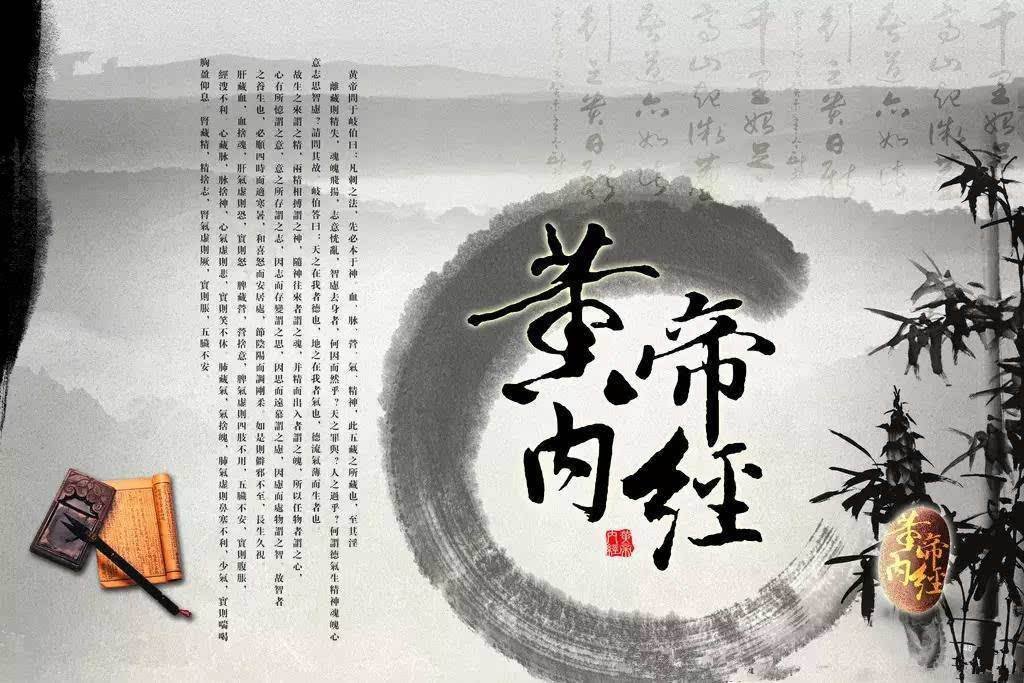 黄帝
内經
黄帝
内經
黄帝
内經
黄帝問于岐伯曰：凡刺之法，先必本于神　血、脉、營、氣、精神，此五藏之所藏也，至其淫
離藏則精失，魂魄飛揚，志意恍亂，智慮去身者，何因而然乎？天之罪與？人之過乎？何謂德氣生精神魂魄心
意志思智慮？請問其故　岐伯答曰：天之在我者德也，地之在我者氣也，德流氣薄而生者也
故生之來謂之精，兩精相搏謂之神，隨神往來者謂之魂，并精而出入者謂之魄，所以任物者謂之心，
心有所憶謂之意，意之所存謂之志，因志而存變謂之思，因思而遠慕謂之慮，因慮而處物謂之智　故智者
之養生也，必順四時而適寒暑，和喜怒而安居處，節陰陽而調剛柔　如是則僻邪不至，長生久視
肝藏血，血捨魂，肝氣虛則恐，實則怒　脾藏營，營捨意，脾氣虛則四肢不用，五臟不安，實則腹脹，
經溲不利　心藏脉，脉捨神，心氣虛則悲，實則笑不休　肺藏氣，氣捨魄，肺氣虛則鼻塞不利，少氣，實則喘喝
胸盈仰息　腎藏精，精捨志，腎氣虛則厥，實則脹，五臟不安